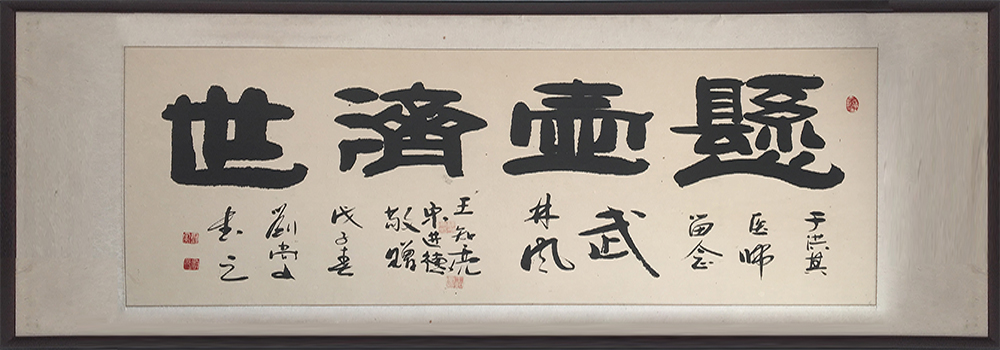 懸壺濟世
于洪其
医师
留念
武
林风
王知亮
宋進德
敬赠
戊子春
劉尚文
书之